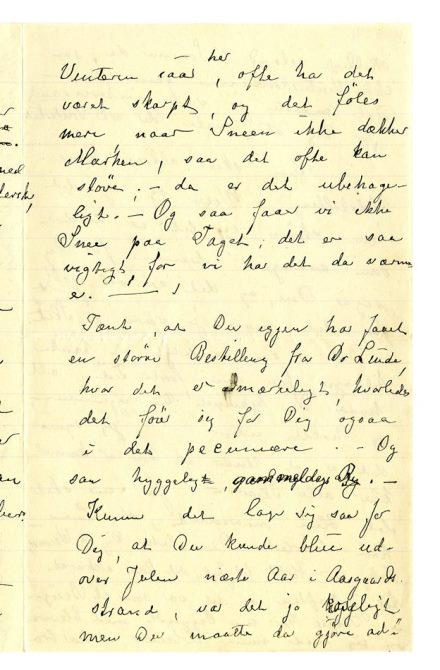 Vinteren iaar her, ofte har det
været skarpt, og det føles
mere naar Sneen ikke dækker
Marken, saa det ofte kan
støve; - da er det ubehage-
ligt. - Og saa faar vi ikke
Snee paa Taget, det er saa
vigtigt, for vi har det da varm-
e. —
Tænk, at Du igjen har faaet
en større Bestilling fra Dr Linde,
hvor det er mærkeligt, hvorledes
det føier sig for Dig ogsaa
i det pecuniære. - Og
saa hyggeligt, . -
Kunne det lage sig saa for
Dig, at Du kunde blive ud-
over Julen næste Aar i Aasgaards-
strand, var det jo hyggeligt
men Du maatte da gjøre ad-